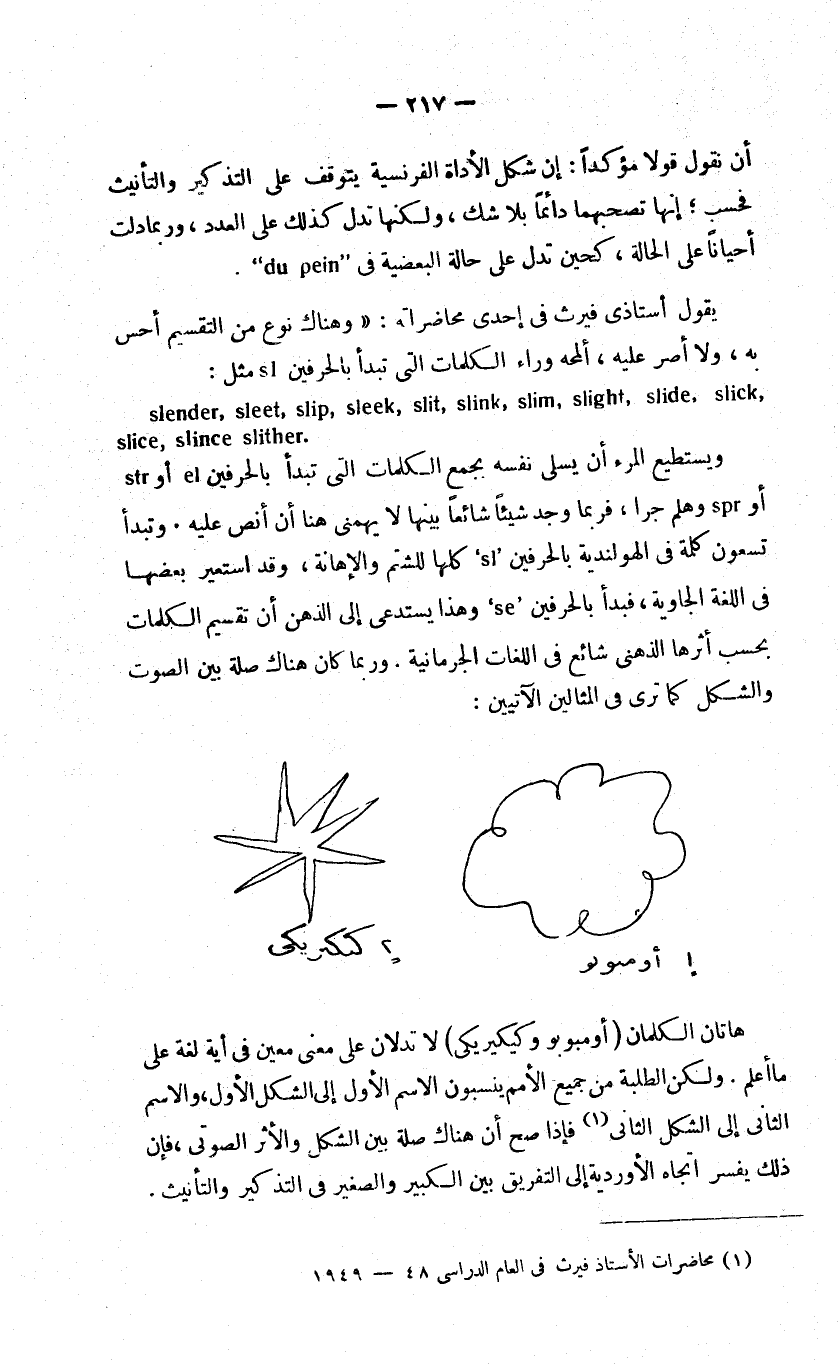 — ٢١٧ —
أن نقول قولا مؤكداً : إن شكل الأداة الفرنسية يتوقف على التذكير والتأنيث
فحسب ؛ إنها تصحبهما دائماً بلا شك ، ولكنها تدل كذلك على العدد ، وربما دلت
أحياناً على الحالة ، كحين تدل على حالة البعضية فى “du pein” .
يقول أستاذى فيرث فى إحدى محاضراته : « وهناك نوع من التقسيم أحس
به ، ولا أصر عليه ، ألمحه وراء الكلمات التى تبدأ بالحرفين sl مثل :
slender, sleet, slip, sleek, slit, slink, slim, slight, slide, slick,
slice, slince slither.
ويستطيع المرء أن يسلى نفسه بجمع الكلمات التى تبدأ بالحرفين el أو str
أو spr وهلم جرا ، فربما وجد شيئاً شائعاً بينها لا يهمنى هنا أن أنص عليه . وتبدأ
تسعون كلمة فى الهولندية بالحرفين ‘sl’ كلها للشتم والإهانة ، وقد استعير بعضها
فى اللغة الجاوية ، فبدأ بالحرفين ‘se’ وهذا يستدعى إلى الذهن أن تقسيم الكلمات
بحسب أثرها الذهنى شائع فى اللغات الجرمانية . وربما كان هناك صلة بين الصوت
والشكل كما ترى فى المثالين الآتيين :
١ أومبوبو
٢ كيكيريكى
هاتان الكلمان ( أومبوبو وكيكيريكى ) لا تدلان على معنى معين فى أية لغة على
ما أعلم . ولكن الطلبة من جميع الأمم ينسبون الاسم الأول إلى الشكل الأول ، والاسم
الثانى إلى الشكل الثانى (١) فإذا صح أن هناك صلة بين الشكل والأثر الصوتى ، فإن
ذلك يفسر اتجاه الأوردية إلى التفريق بين الكبير والصغير فى التذكير والتأنيث .
(١) محاضرات الأستاذ فيرث فى العام الدراسى ٤٨ — ١٩٤٩